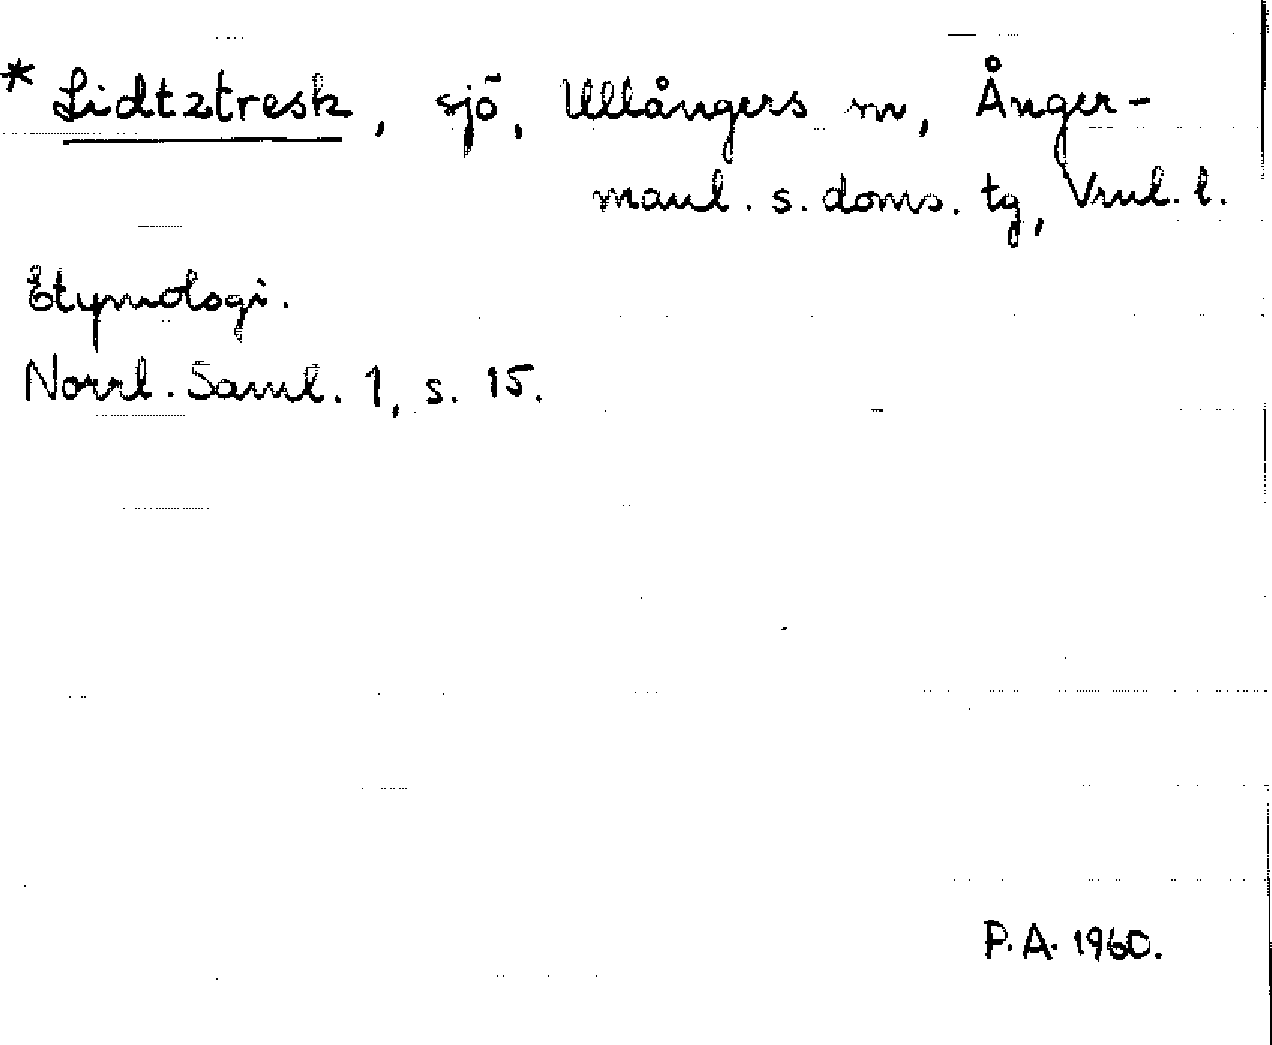 * Lidtztresk, sjö, Ullångers sn, Ånger-
manl. s. doms. tg, Vnrl. l.
Etymologi.
Norrl. Saml. 1, s. 15.
P.A. 1960.